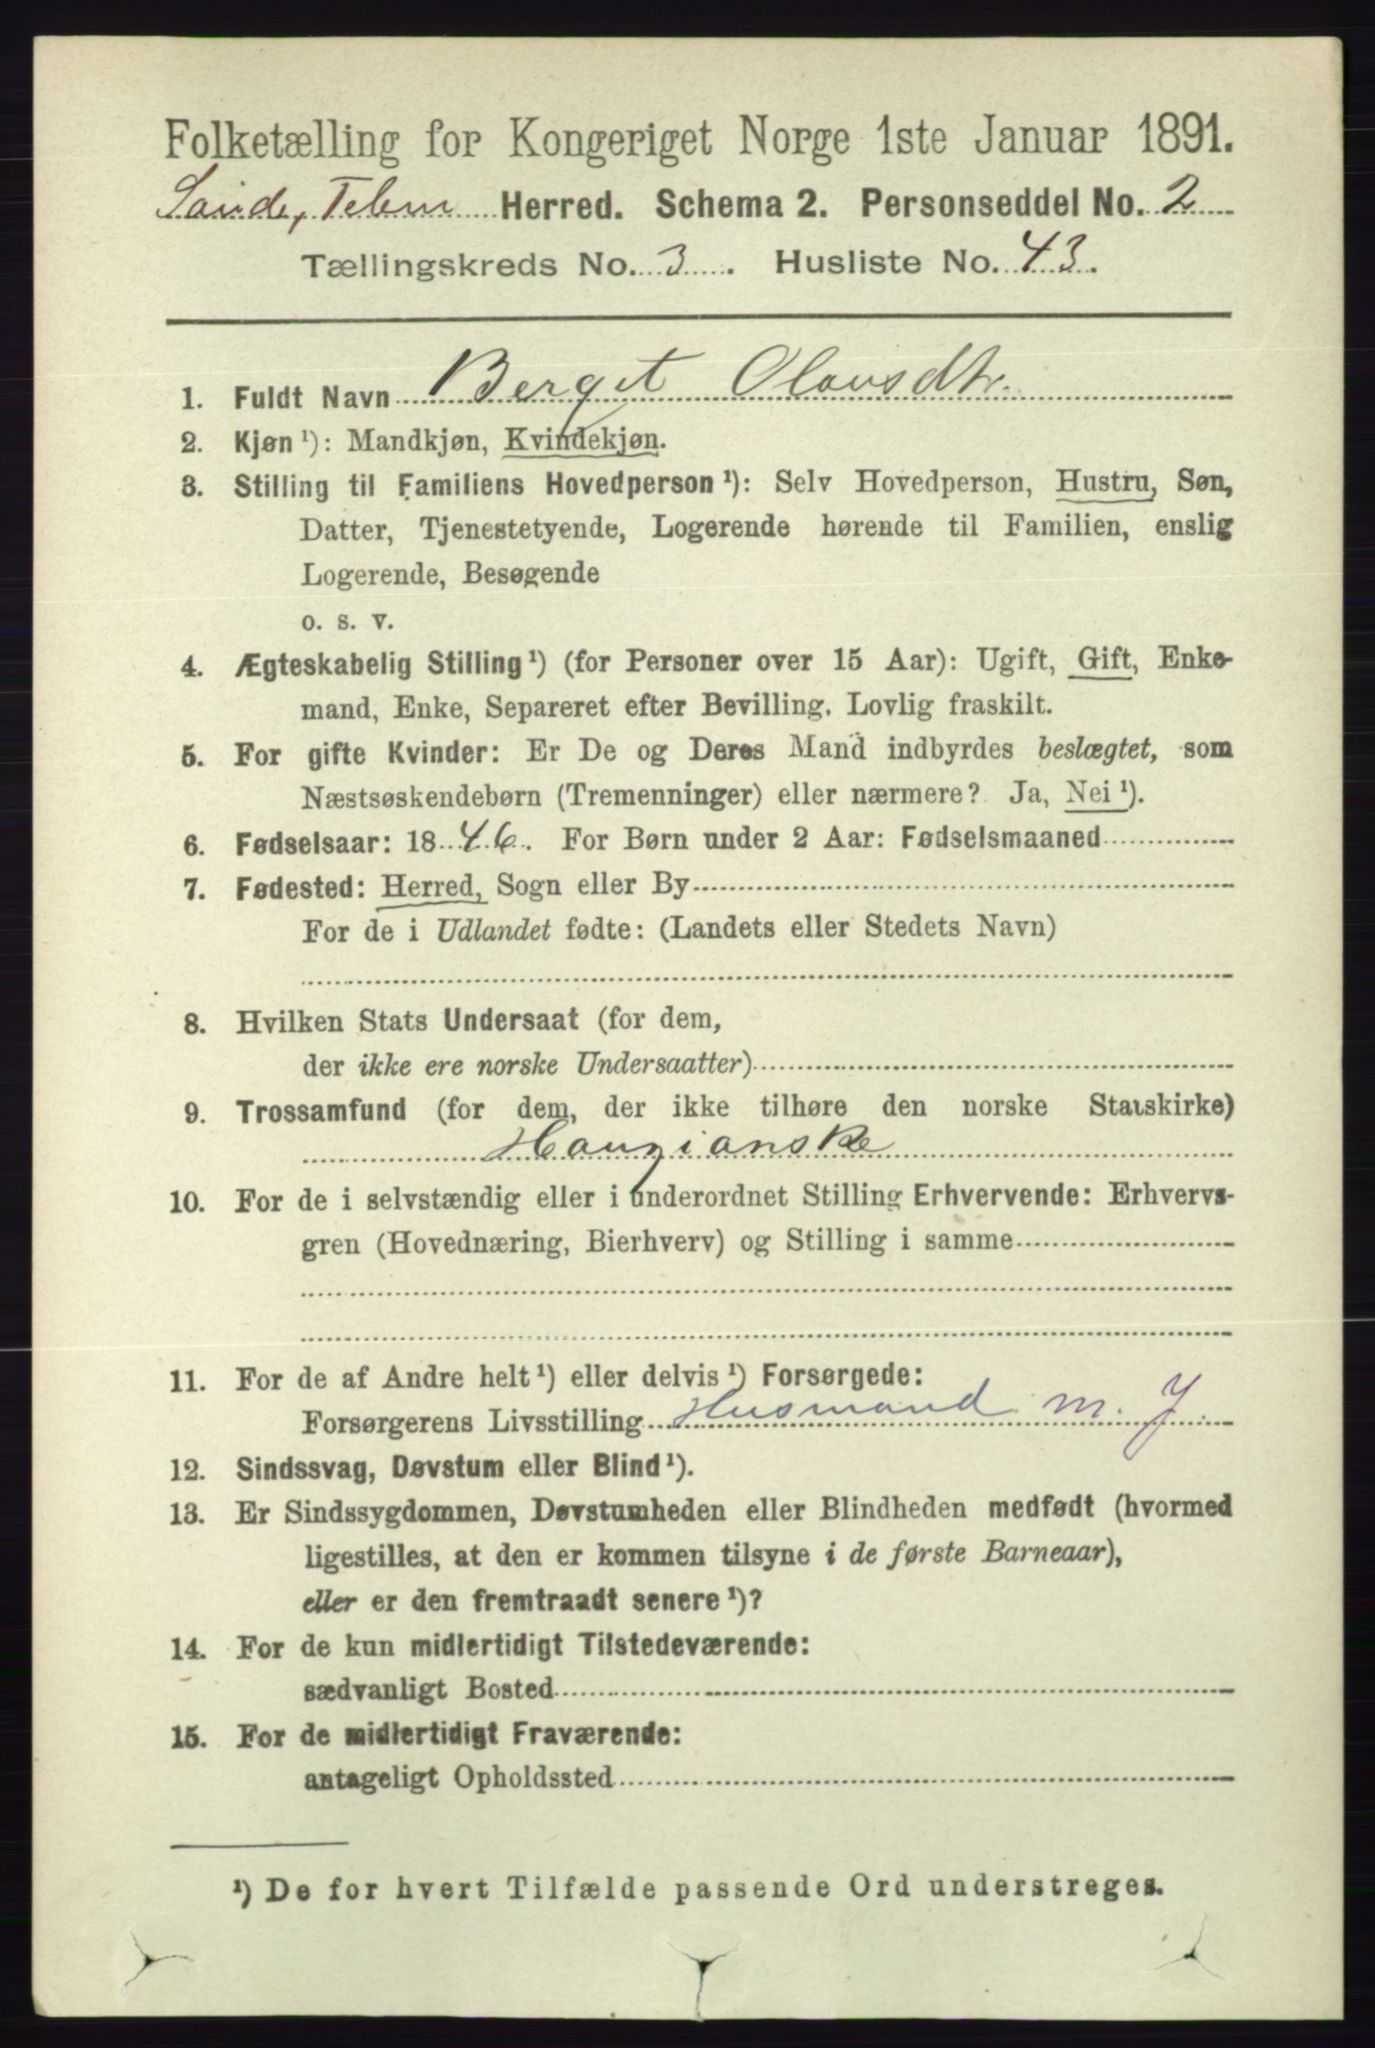 Folketælling for Kongeriget Norge 1ste Januar 1891.
Herred. Schema 2. Personseddel No. 2
Tællingskreds No. 3. Husliste No. 43.
1. Fuldt Navn Berget Olausdtr.
2. Kjøn ¹): Mandkjøn, Kvindekjøn.
3. Stilling til Familiens Hovedperson ¹): Selv Hovedperson, Hustru, Søn,
Datter, Tjenestetyende, Logerende hørende til Familien, enslig
Logerende, Besøgende
o. s. v.
4. Ægteskabelig Stilling ¹) (for Personer over 15 Aar): Ugift, Gift, Enke-
mand, Enke, Separeret efter Bevilling. Lovlig fraskilt.
5. For gifte Kvinder: Er De og Deres Mand indbyrdes beslægtet, som
Næstsøskendebørn (Tremenninger) eller nærmere? Ja, Nei ¹).
6. Fødselsaar: 1846. For Børn under 2 Aar: Fødselsmaaned
7. Fødested: Herred, Sogn eller By
For de i Udlandet fødte: (Landets eller Stedets Navn)
8. Hvilken Stats Undersaat (for dem,
der ikke ere norske Undersaatter)
9. Trossamfund (for dem, der ikke tilhøre den norske Statskirke)
Haugianske
10. For de i selvstændig eller i underordnet Stilling Erhvervende: Erhvervs-
gren (Hovednæring, Bierhverv) og Stilling i samme
11. For de af Andre helt ¹) eller delvis ¹) Forsørgede:
Forsørgerens Livsstilling Husmand m. J.
12. Sindssvag, Døvstum eller Blind ¹).
13. Er Sindssygdommen, Døvstumheden eller Blindheden medfødt (hvormed
ligestilles, at den er kommen tilsyne i de første Barneaar),
eller er den fremtraadt senere ¹)?
14. For de kun midlertidigt Tilstedeværende:
sædvanligt Bosted
15. For de midlertidigt Fraværende:
antageligt Opholdssted
¹) De for hvert Tilfælde passende Ord understreges.